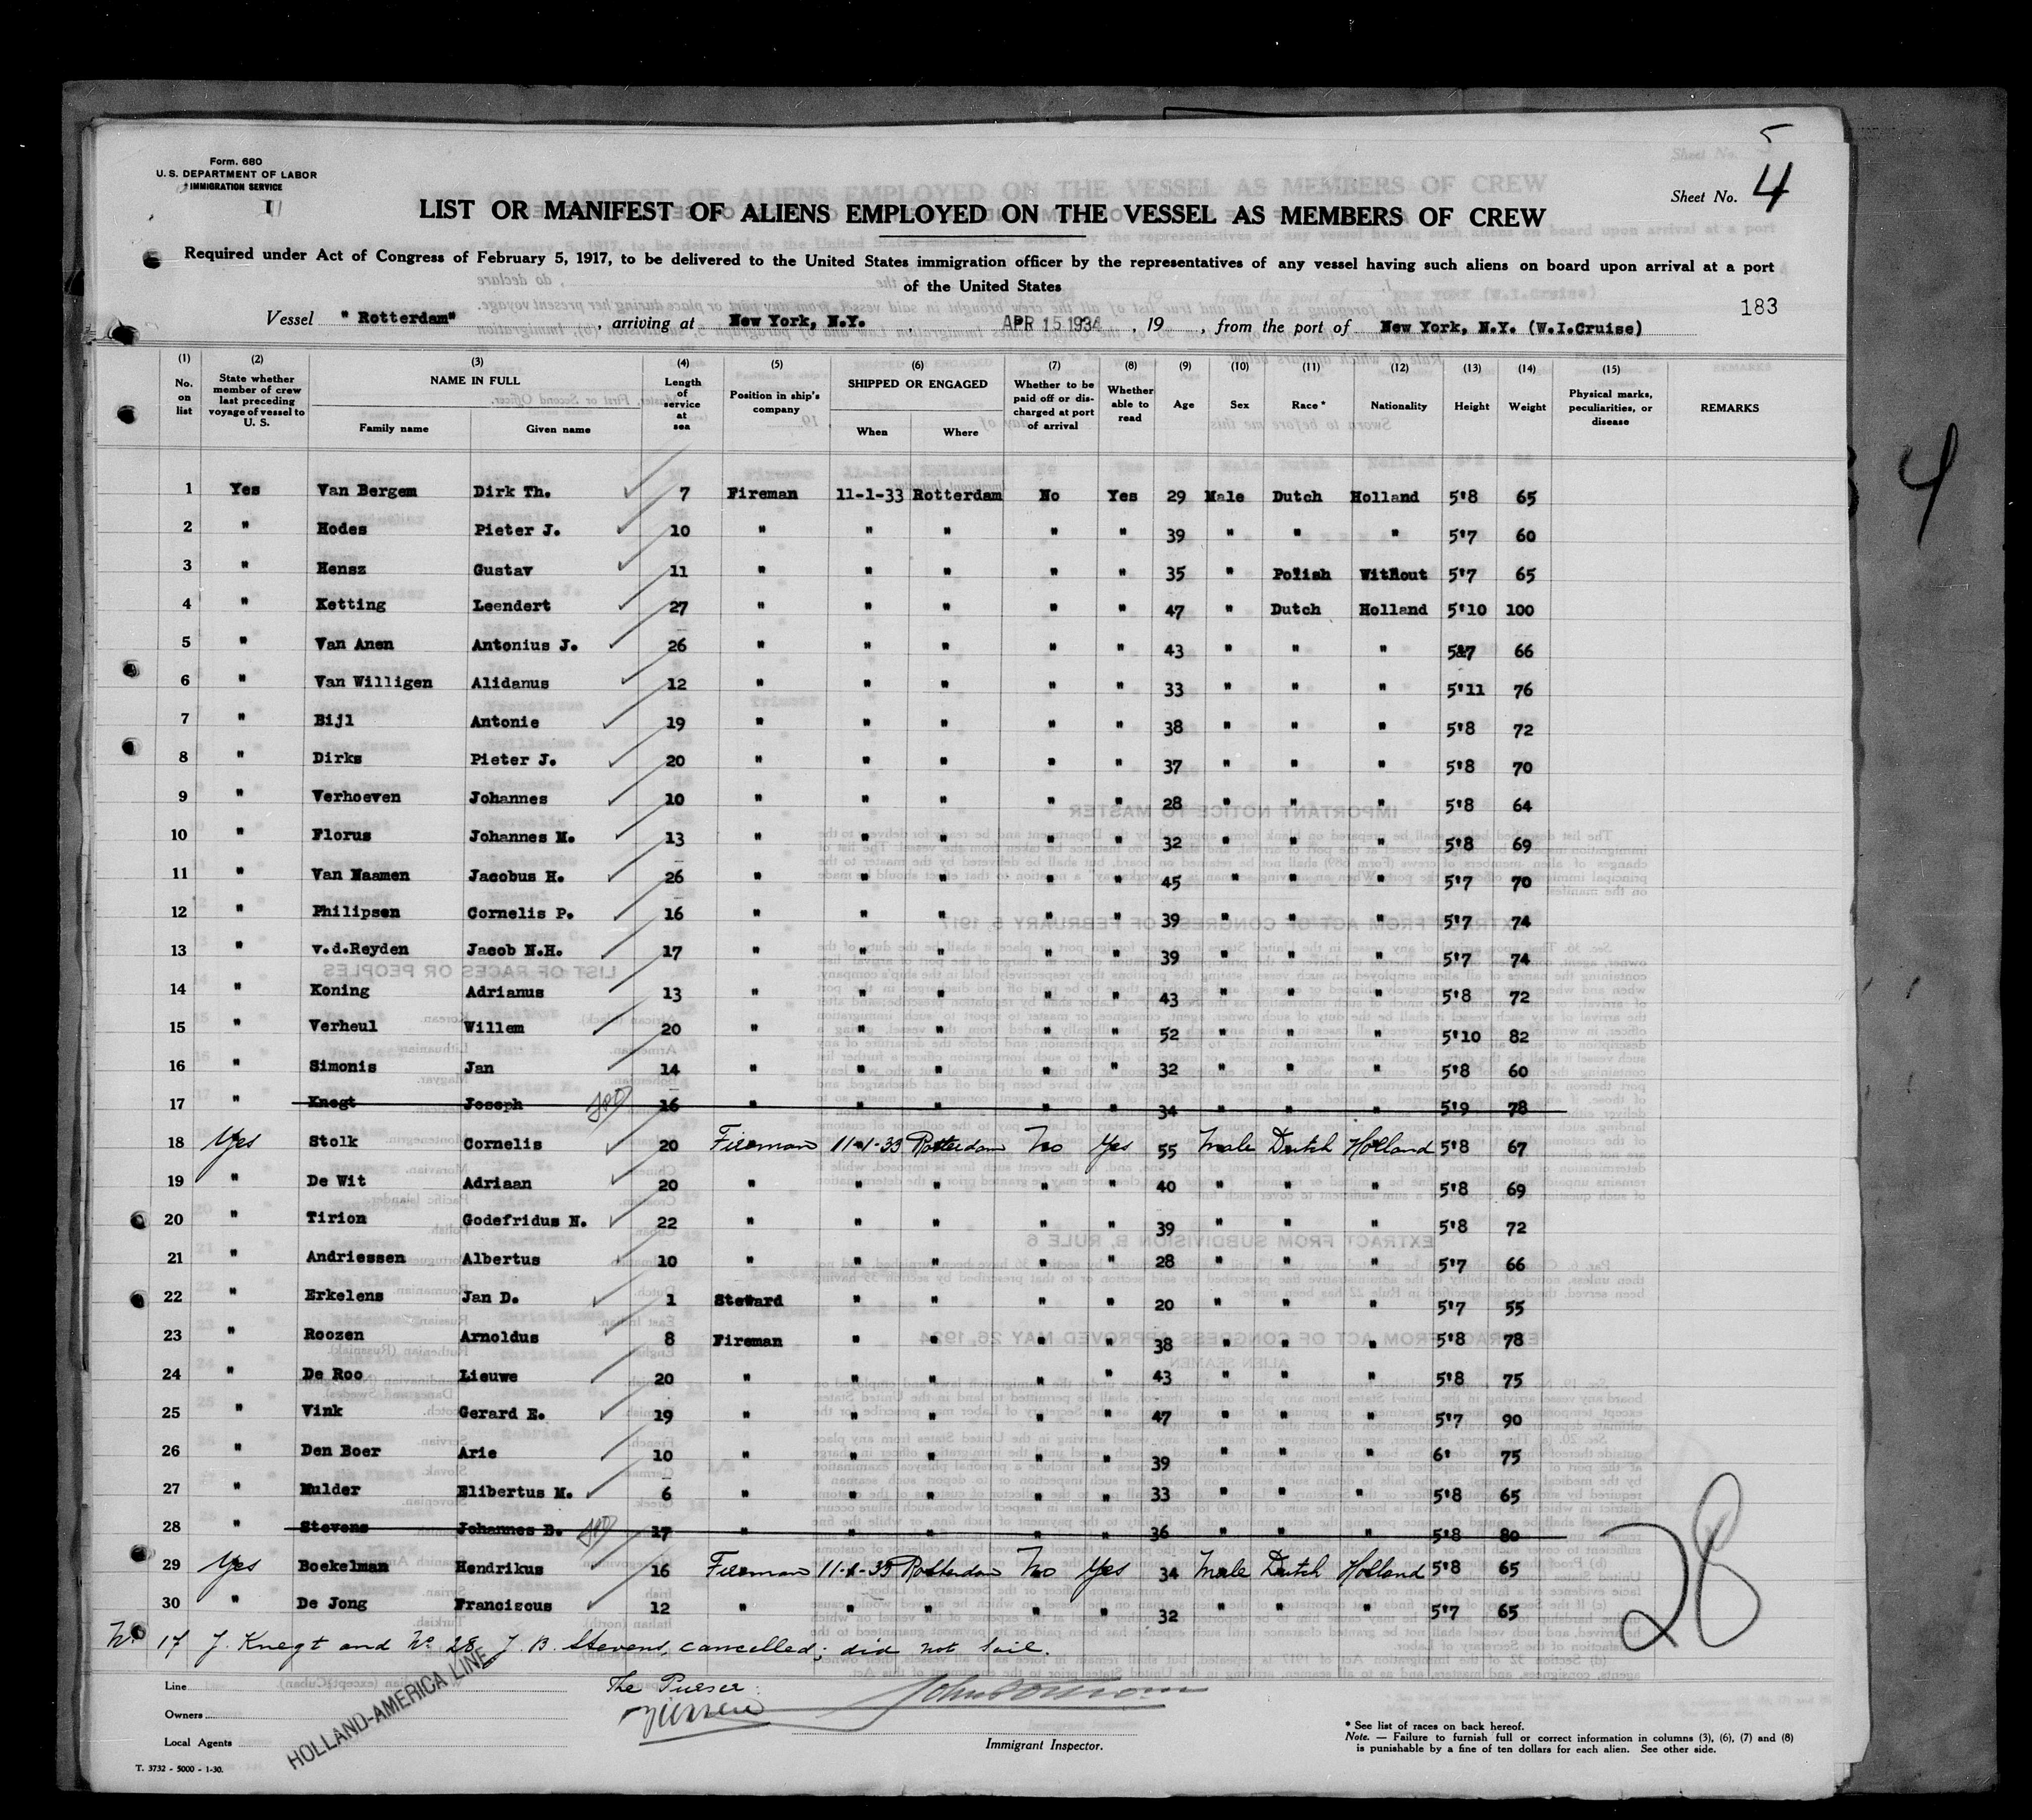 5
Form. 680
U. S. DEPARTMENT OF LABOR
IMMIGRATION SERVICE
I
Sheet No. 4
LIST OR MANIFEST OF ALIENS EMPLOYED ON THE VESSEL AS MEMBERS OF CREW
Required under Act of Congress of February 5, 1917, to be delivered to the United States immigration officer by the representatives of any vessel having such aliens on board upon arrival at a port
of the United States
183
Vessel "Rotterdam", arriving at New York, N.Y., APR 15 1934, 19 , from the port of New York, N.Y. (W.I.Cruise)
(1) No. on list (2) State whether member of crew last preceding voyage of vessel to U. S. (3) NAME IN FULL Family name Given name (4) Length of service at sea (5) Position in ship's company (6) SHIPPED OR ENGAGED When Where (7) Whether to be paid off or discharged at port of arrival (8) Whether able to read (9) Age (10) Sex (11) Race * (12) Nationality (13) Height (14) Weight (15) Physical marks, peculiarities, or disease REMARKS
1 Yes Van Bergem Dirk Th. 7 Fireman 11-1-33 Rotterdam No Yes 29 Male Dutch Holland 5'8 65
2 " Hodes Pieter J. 10 " " " " " 39 " " " 5'7 60
3 " Hensz Gustav 11 " " " " " 35 " Polish Without 5'7 65
4 " Ketting Leendert 27 " " " " " 47 " Dutch Holland 5'10 100
5 " Van Anen Antonius J. 26 " " " " " 43 " " " 5'7 66
6 " Van Willigen Alidanus 12 " " " " " 33 " " " 5'11 76
7 " Bijl Antonie 19 " " " " " 38 " " " 5'8 72
8 " Dirks Pieter J. 20 " " " " " 37 " " " 5'8 70
9 " Verhoeven Johannes 10 " " " " " 28 " " " 5'8 64
10 " Florus Johannes M. 13 " " " " " 32 " " " 5'8 69
11 " Van Naamen Jacobus H. 26 " " " " " 45 " " " 5'7 70
12 " Philipsen Cornelis P. 16 " " " " " 39 " " " 5'7 74
13 " v.d.Reyden Jacob N.H. 17 " " " " " 39 " " " 5'7 74
14 " Koning Adrianus 13 " " " " " 43 " " " 5'8 72
15 " Verheul Willem 20 " " " " " 52 " " " 5'10 82
16 " Simonis Jan 14 " " " " " 32 " " " 5'8 60
17 " Knegt Joseph 16 " " " " " 34 " " " 5'9 78
18 Yes Stolk Cornelis 20 Fireman 11-1-33 Rotterdam No Yes 55 Male Dutch Holland 5'8 67
19 " De Wit Adriaan 20 " " " " " 40 " " " 5'8 69
20 " Tirion Godefridus N. 22 " " " " " 39 " " " 5'8 72
21 " Andriessen Albertus 10 " " " " " 28 " " " 5'7 66
22 " Erkelens Jan D. 1 Steward " " " " 20 " " " 5'7 55
23 " Roozen Arnoldus 8 Fireman " " " " 38 " " " 5'8 78
24 " De Roo Lieuwe 20 " " " " " 43 " " " 5'8 75
25 " Vink Gerard E. 19 " " " " " 47 " " " 5'7 90
26 " Den Boer Arie 10 " " " " " 39 " " " 6' 75
27 " Mulder Elibertus M. 6 " " " " " 33 " " " 5'8 65
28 " Stevens Johannes B. 17 " " " " " 36 " " " 5'8 80
29 Yes Boekelman Hendrikus 16 Fireman 11-1-33 Rotterdam No Yes 34 Male Dutch Holland 5'8 65
30 " De Jong Franciscus 12 " " " " " 32 " " " 5'7 65
No 17 J. Knegt and No 28 J. B. Stevens cancelled; did not sail.
28
The Purser
Line
Owners
Local Agents
HOLLAND-AMERICA LINE
Immigrant Inspector.
* See list of races on back hereof.
Note. — Failure to furnish full or correct information in columns (3), (6), (7) and (8)
is punishable by a fine of ten dollars for each alien. See other side.
T. 3732 - 5000 - 1-30.
4